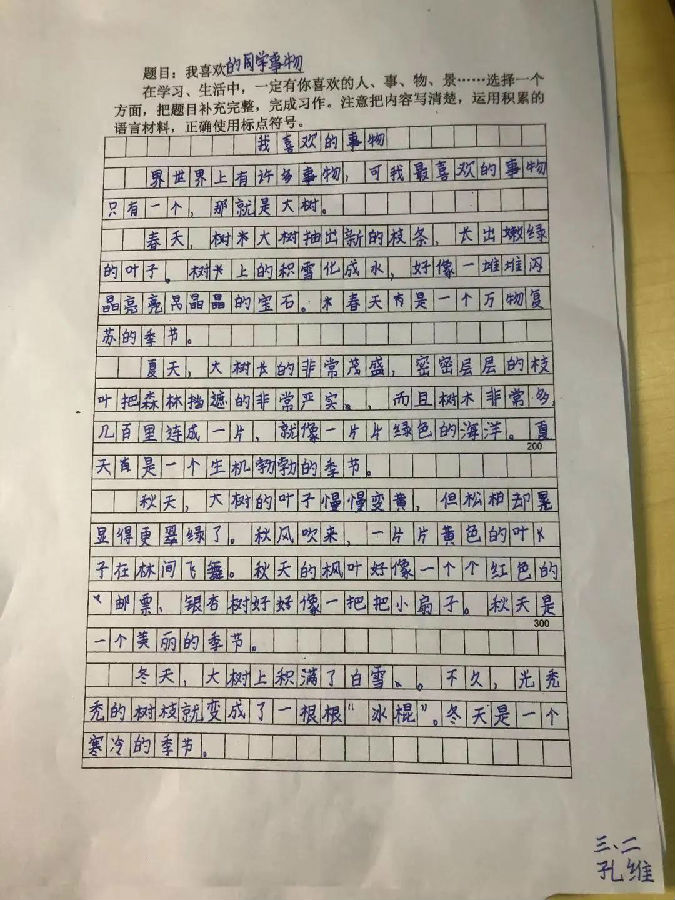 题目：我喜欢的同学事物
在学习、生活中，一定有你喜欢的人、事、物、景……选择一个
方面，把题目补充完整，完成习作。注意把内容写清楚，运用积累的
语言材料，正确使用标点符号。
我喜欢的事物
界世界上有许多事物，可我最喜欢的事物
只有一个，那就是大树。
春天，树木大树抽出新的枝条，长出嫩绿
的叶子。树木上的积雪化成水，好像一堆堆闪
晶亮亮晶晶的宝石。春天肯是一个万物复
苏的季节。
夏天，大树长的非常茂盛，密密层层的枝
叶把森林挡遮的非常严实。，而且树木非常多，
几百里连成一片，就像一片片绿色的海洋。夏
200
天肯是一个生机勃勃的季节。
秋天，大树的叶子慢慢变黄，但松柏却
显得更翠绿了。秋风吹来，一片片黄色的叶
子在林间飞舞。秋天的枫叶好像一个个红色的
邮票，银杏树好好像一把把小扇子。秋天是
300
一个美丽的季节。
冬天，大树上积满了白雪、。不久，光秃
秃的树枝就变成了一根根“冰棍”。冬天是一个
寒冷的季节。
三、二
孔维